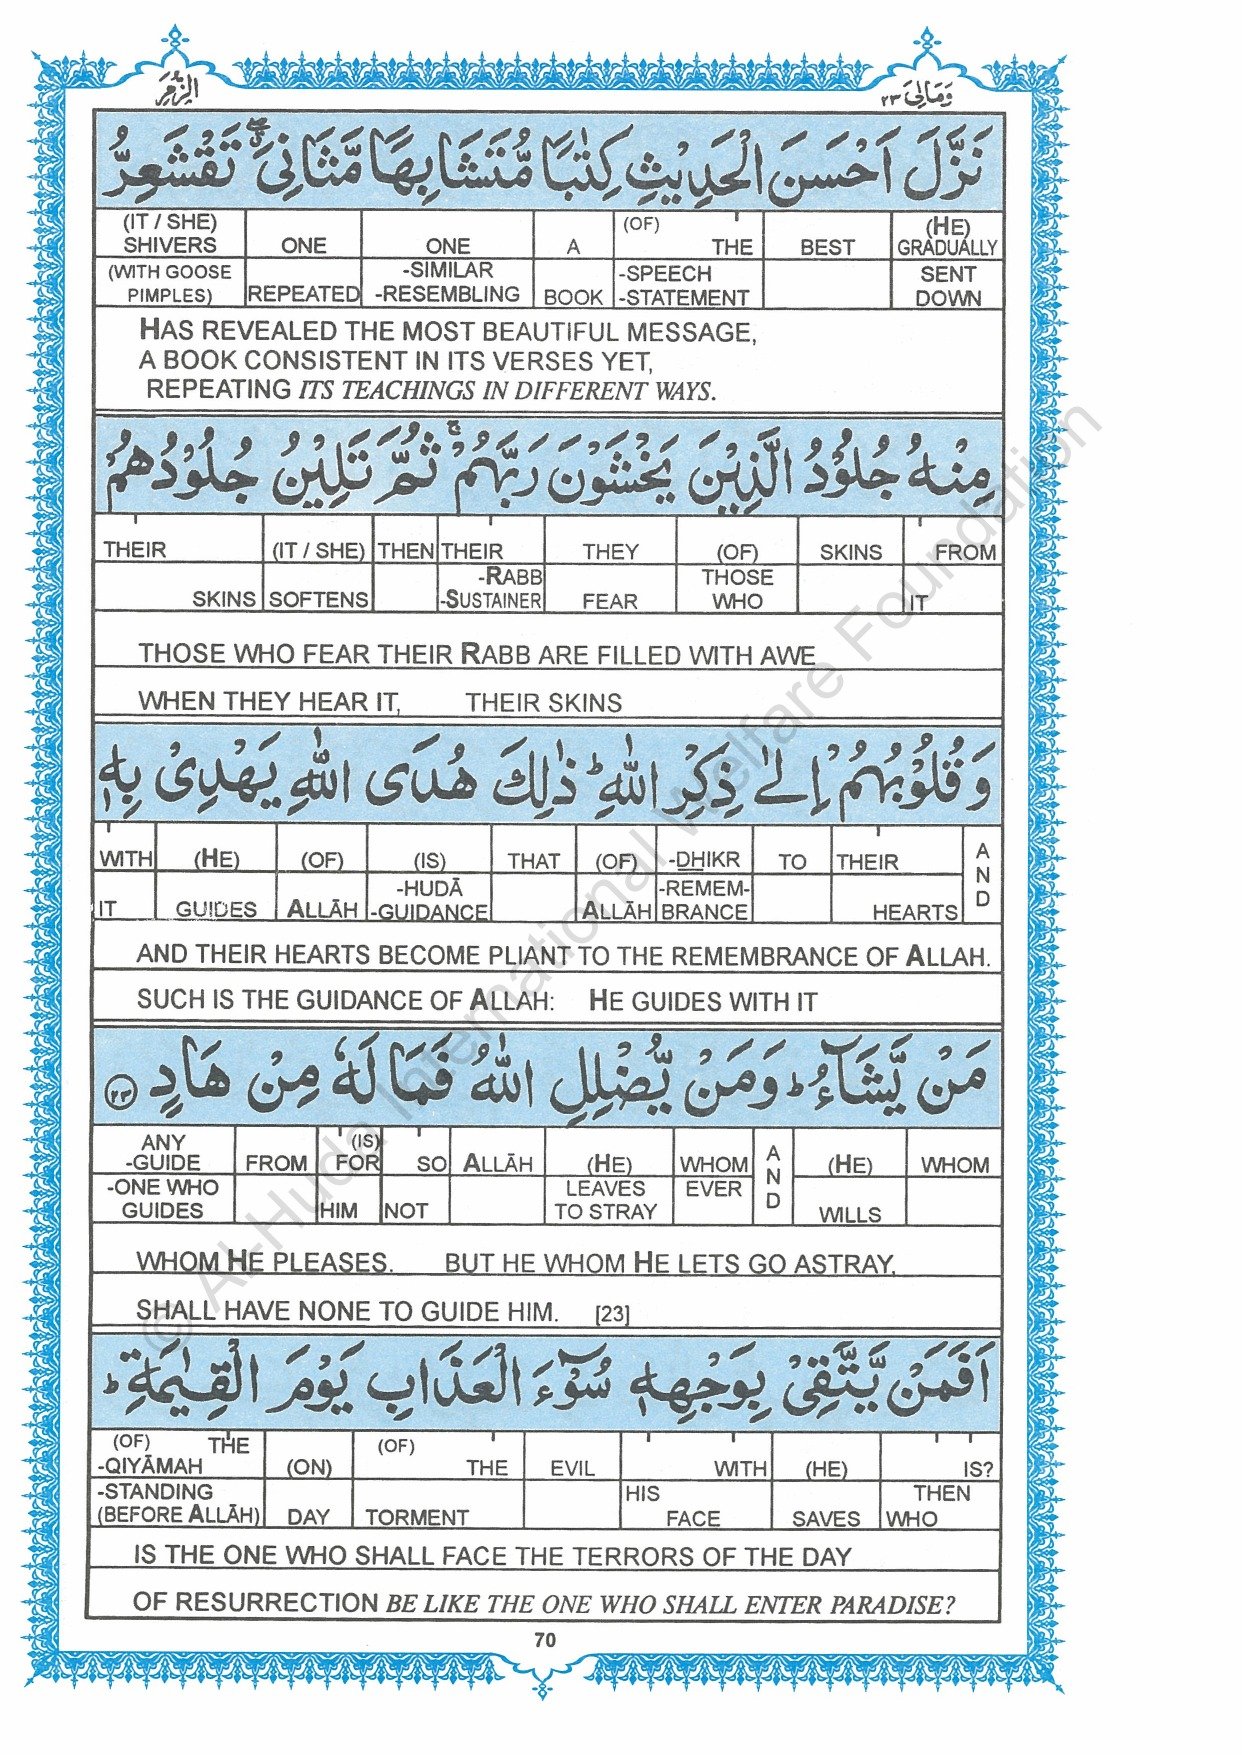 الزمر
وَمَالِیَ ٢٣
نَزَّلَ اَحْسَنَ الْحَدِیْثِ كِتٰبًا مُّتَشَابِهًا مَّثَانِیَ ۖۗ تَقْشَعِرُّ
(IT / SHE) SHIVERS ONE ONE A (OF) THE BEST (HE) GRADUALLY
(WITH GOOSE PIMPLES) REPEATED -SIMILAR -RESEMBLING BOOK -SPEECH -STATEMENT SENT DOWN
HAS REVEALED THE MOST BEAUTIFUL MESSAGE,
A BOOK CONSISTENT IN ITS VERSES YET,
REPEATING ITS TEACHINGS IN DIFFERENT WAYS.
مِنْهُ جُلُوْدُ الَّذِیْنَ یَخْشَوْنَ رَبَّهُمْ ۚ ثُمَّ تَلِیْنُ جُلُوْدُهُمْ
THEIR (IT / SHE) THEN THEIR THEY (OF) SKINS FROM
SKINS SOFTENS -RABB -SUSTAINER FEAR THOSE WHO IT
THOSE WHO FEAR THEIR RABB ARE FILLED WITH AWE
WHEN THEY HEAR IT, THEIR SKINS
وَقُلُوْبُهُمْ اِلٰى ذِكْرِ اللّٰهِ ؕ ذٰلِكَ هُدَى اللّٰهِ یَهْدِیْ بِهٖ
WITH (HE) (OF) (IS) THAT (OF) -DHIKR TO THEIR AND
IT GUIDES ALLĀH -HUDĀ -GUIDANCE ALLĀH -REMEM-BRANCE HEARTS
AND THEIR HEARTS BECOME PLIANT TO THE REMEMBRANCE OF ALLAH.
SUCH IS THE GUIDANCE OF ALLAH: HE GUIDES WITH IT
مَنْ یَّشَآءُ ؕ وَمَنْ یُّضْلِلِ اللّٰهُ فَمَا لَهٗ مِنْ هَادٍ ٢٣
ANY -GUIDE FROM (IS) FOR SO ALLĀH (HE) WHOM AND (HE) WHOM
-ONE WHO GUIDES HIM NOT LEAVES TO STRAY EVER WILLS
WHOM HE PLEASES. BUT HE WHOM HE LETS GO ASTRAY,
SHALL HAVE NONE TO GUIDE HIM. [23]
اَفَمَنْ یَّتَّقِیْ بِوَجْهِهٖ سُوْٓءَ الْعَذَابِ یَوْمَ الْقِیٰمَةِ ؕ
(OF) THE -QIYĀMAH (ON) (OF) THE EVIL WITH (HE) IS?
-STANDING (BEFORE ALLĀH) DAY TORMENT HIS FACE SAVES THEN WHO
IS THE ONE WHO SHALL FACE THE TERRORS OF THE DAY
OF RESURRECTION BE LIKE THE ONE WHO SHALL ENTER PARADISE?
70
© Al-Huda International Welfare Foundation